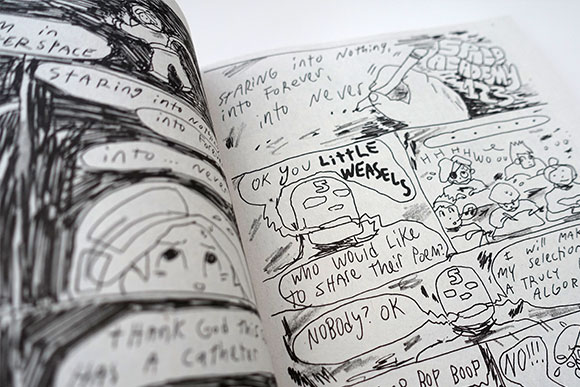 M IN
ERSPACE
STARING INTO NOTH
INTO FORE
INTO... NEVER
THANK GOD THIS
HAS A CATHETER
STARING INTO NOTHING,
INTO FOREVER,
INTO NEVER
ACADEMY
OK YOU LITTLE
WEASELS
WHO WOULD LIKE
TO SHARE THEIR POEM?
NOBODY? OK
I WILL MAK
MY SELECTION
A TRULY
ALGOR
BOP BOOP
NO!!!